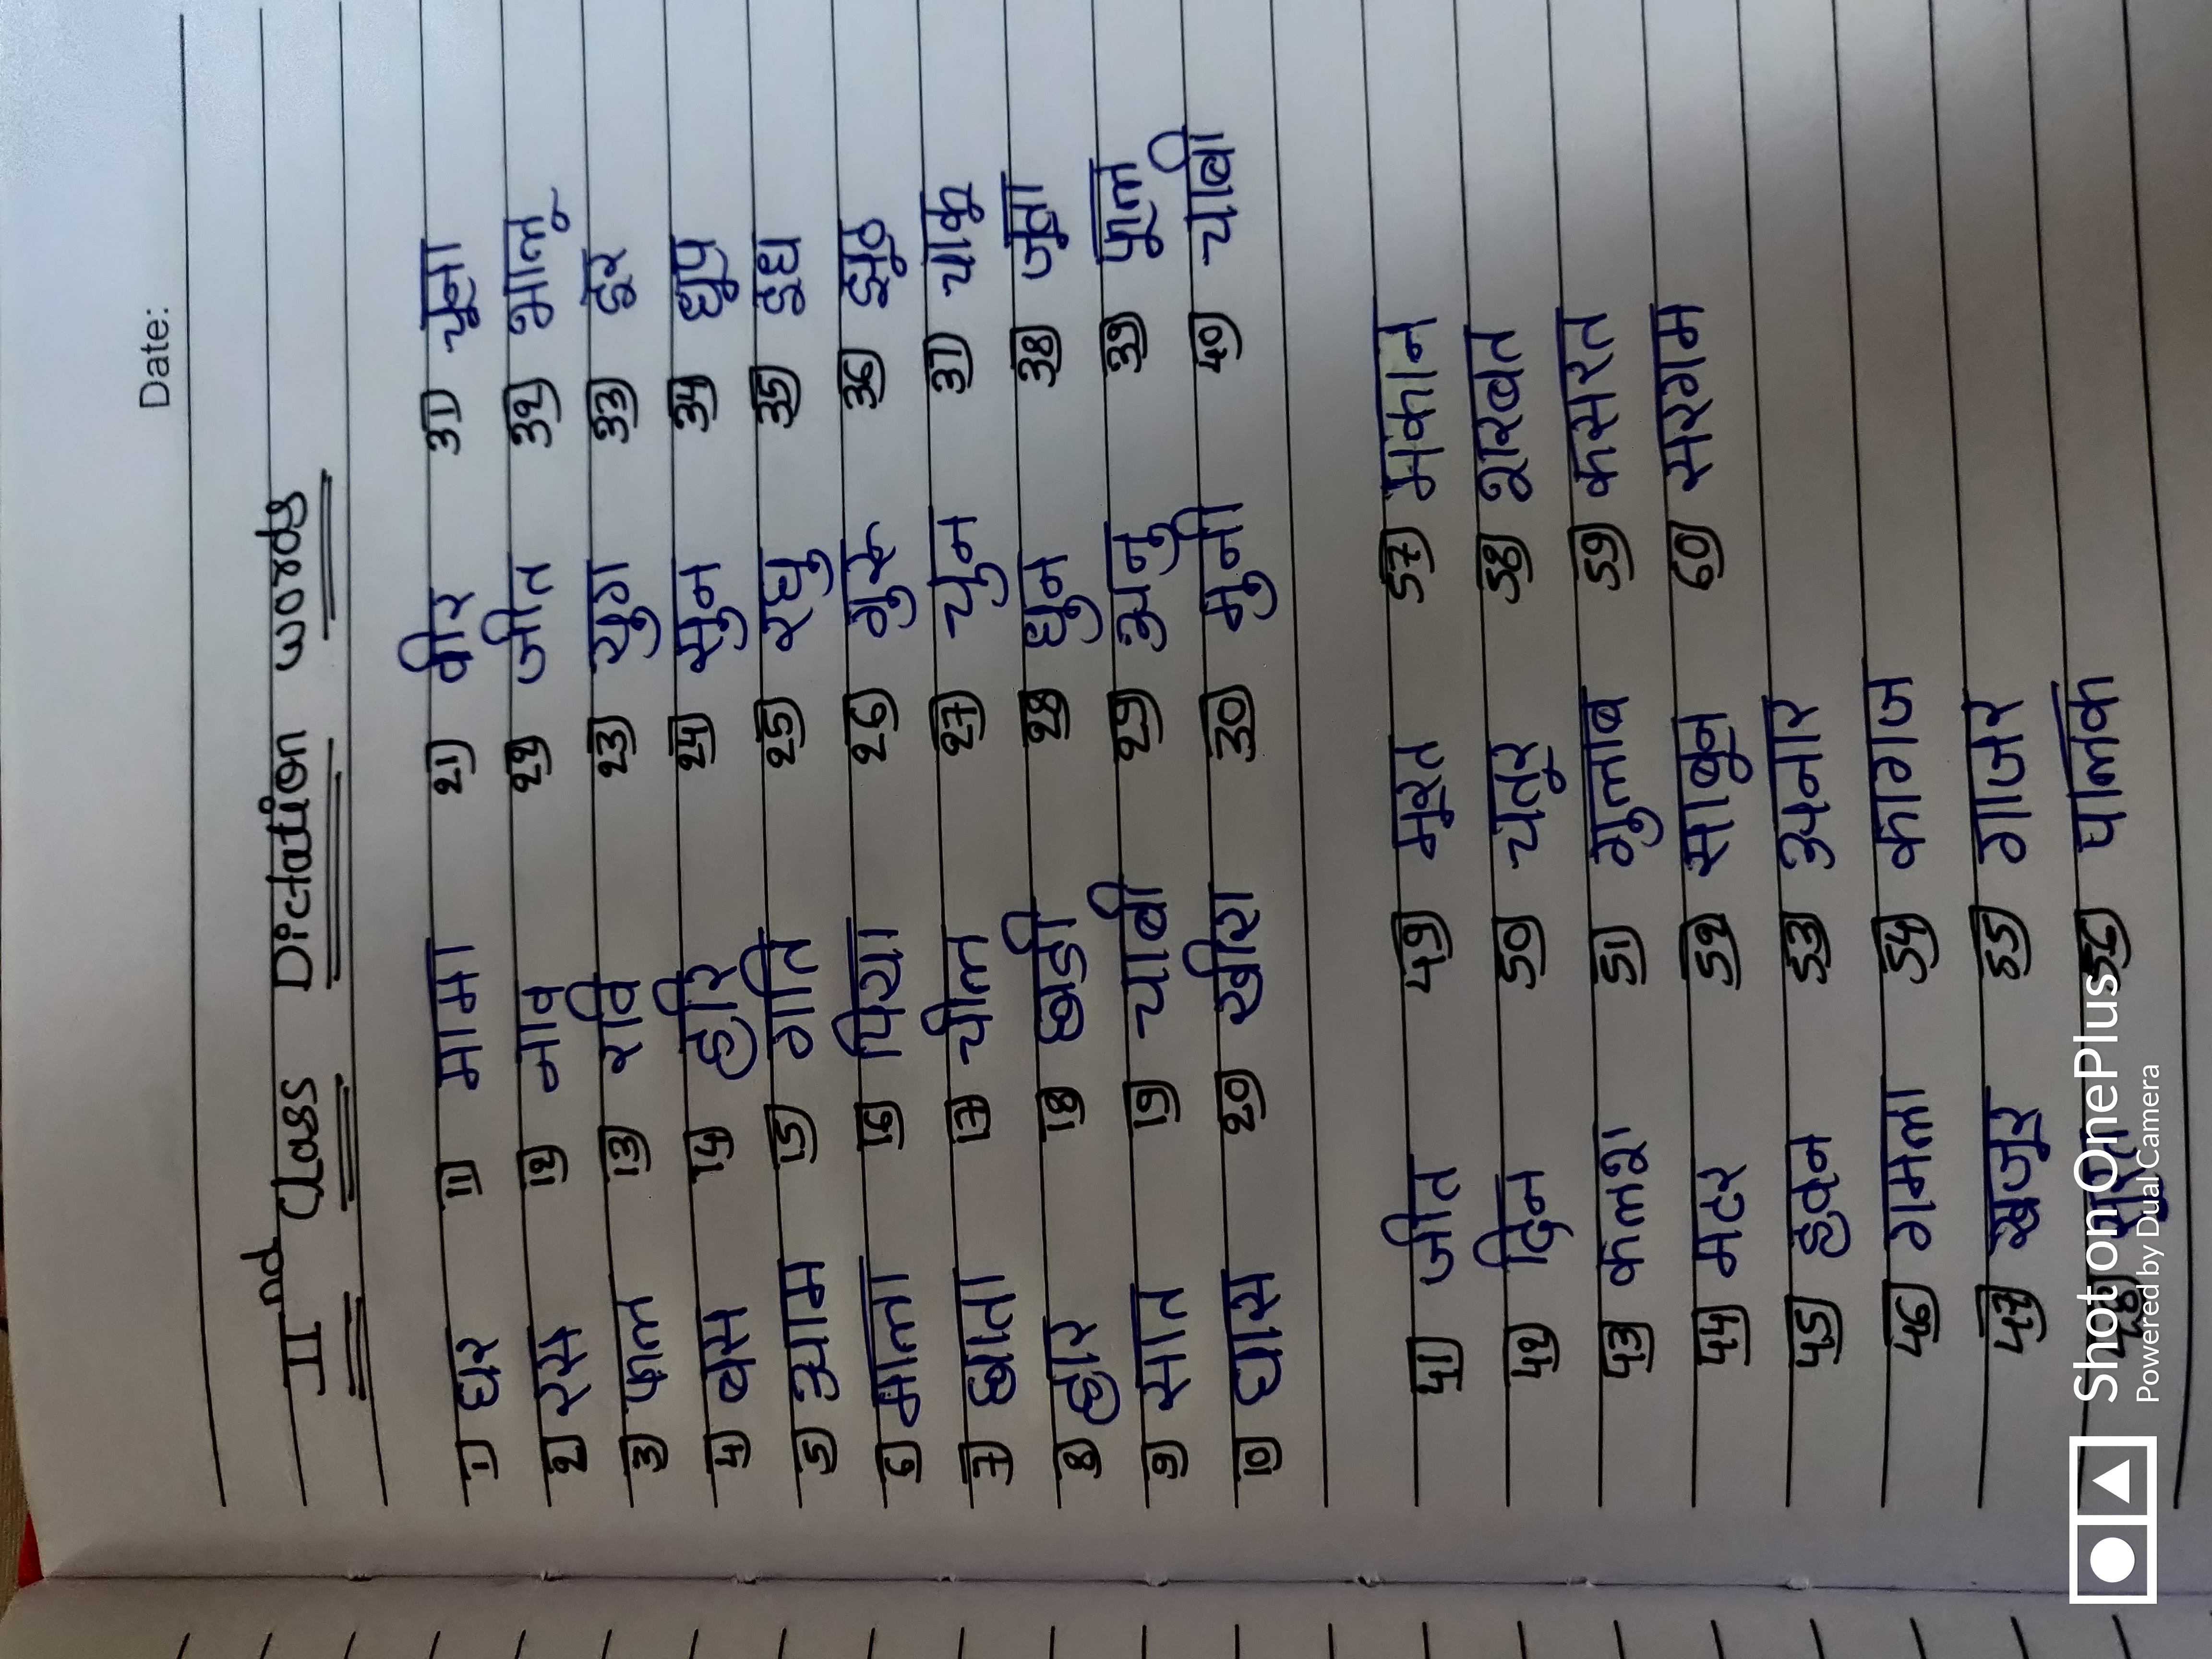 Date:
IInd Class Dictation words
1) घर 11) मामा 21) वीर 31) चूना
2) रस 12) नाव 22) जीत 32) भालू
3) फल 13) रवि 23) युग 33) दूर
4) बस 14) हरि 24) सुन 34) धूप
5) आम 15) गति 25) रघु 35) दूध
6) माला 16) पिया 26) गुरू 36) झूठ
7) छाता 17) चील 27) चुन 37) चाकू
8) हार 18) छडी 28) धुन 38) जूता
9) सात 19) चाबी 29) अनु 39) फूल
10) घास 20) खीरा 30) मुनी 40) चाबी
41) जीत 49) मूरत 57) मकान
42) दिन 50) चतुर 58) शरबत
43) कलश 51) गुलाब 59) कसरत
44) मटर 52) साबुन 60) सरगम
45) हवन 53) अनार
46) गमला 54) कागज
47) खजूर 55) गाजर
48) 56) पालक
Shot on OnePlus
Powered by Dual Camera